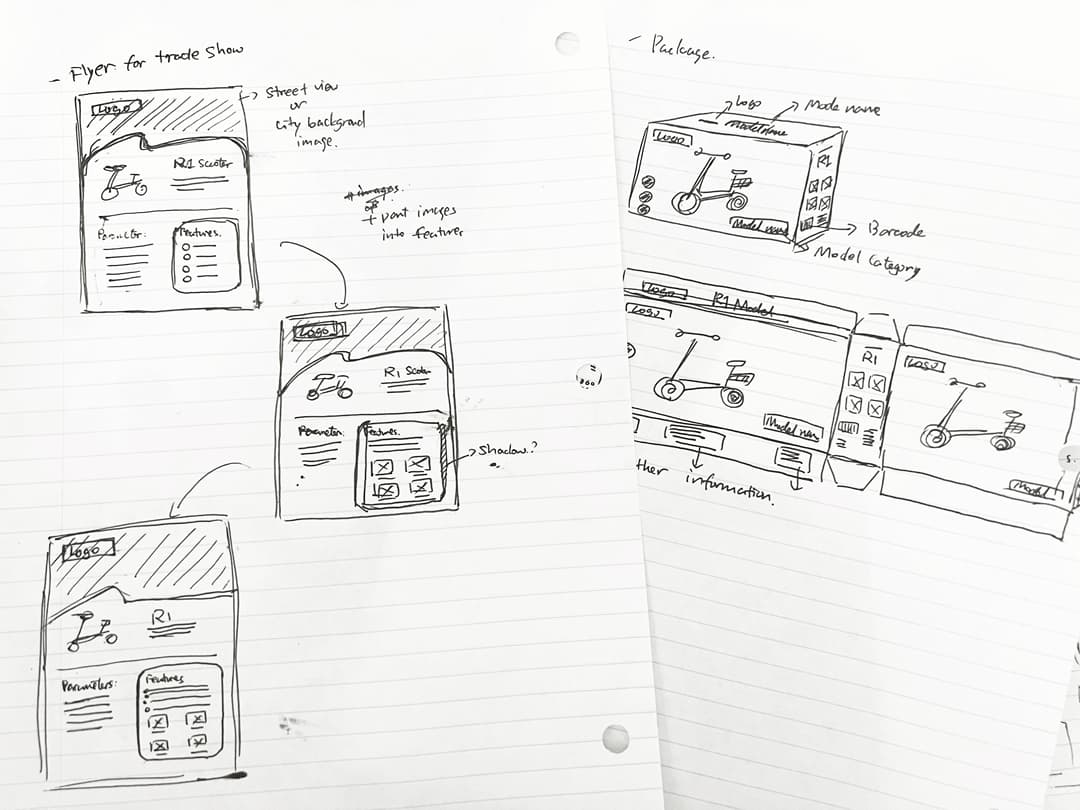 - Flyer for trade show
Logo
Street view
or
city backgroud
image.
R1 Scooter
Parameter:
Features.
# images.
+ part images
into featurer
Logo
R1 Scooter
Parameter:
Features.
Shadow.?
Logo
R1
Parameters:
Features
- Package.
Logo
Mode name
Model Name
Logo
R1
Model name
Barcode
Model Category
Logo
R1 Model
Logo
R1
Logo
Model nam
Model
ther information.
S.